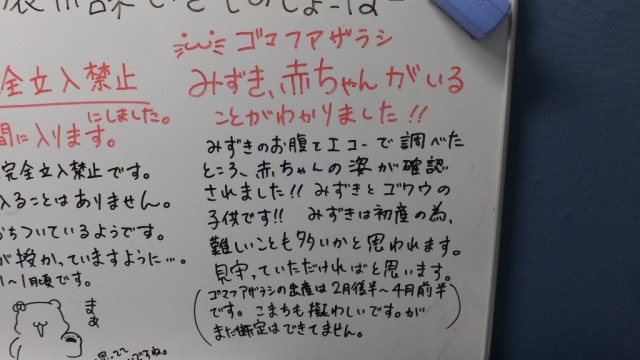 ゴマフアザラシ
みずき、赤ちゃんがいる
ことがわかりました!!
みずきのお腹をエコーで調べた
ところ、赤ちゃんの姿が確認
されました!! みずきとゴウの
子供です!! みずきは初産の為、
難しいことも多いかと思われます。
見守っていただければと思います。
(ゴマフアザラシの出産は2月後半~4月前半
です。こまちも擬わしいです。が
まだ断定はできてません。)
全立入禁止
にしました。
間に入ります。
完全立入禁止です。
入ることはありません。
ちついているようです。
が授かっていますように…。
~1月頃です。
まぁ